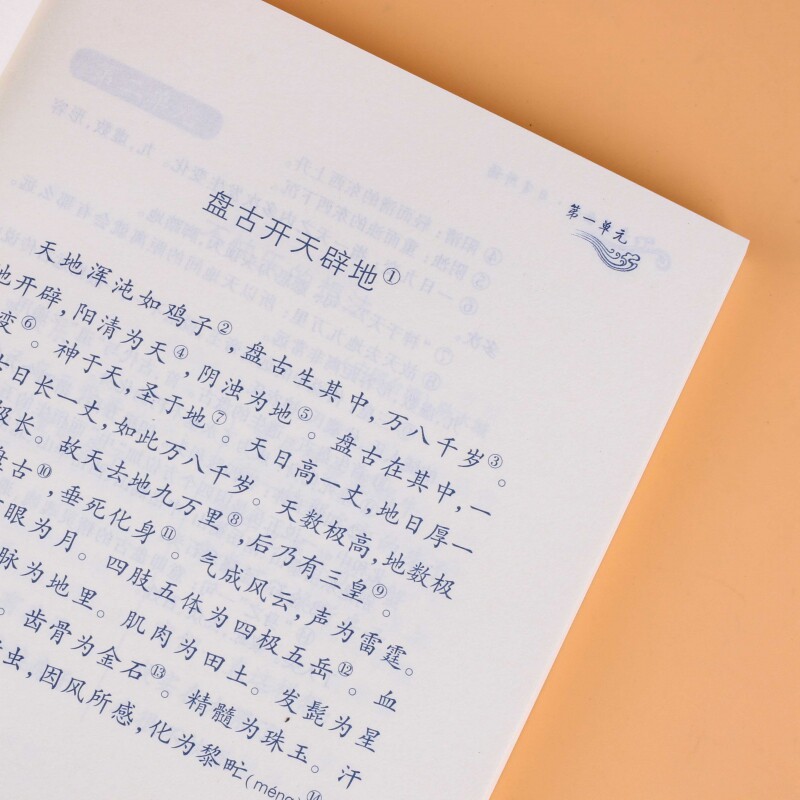 第一单元
盘古开天辟地①
天地浑沌如鸡子②,盘古生其中,万八千岁③。
地开辟,阳清为天④,阴浊为地⑤。盘古在其中,一
变⑥。神于天,圣于地⑦。天日高一丈,地日厚一
日长一丈,如此万八千岁。天数极高,地数极
极长。故天去地九万里⑧,后乃有三皇⑨。
盘古⑩,垂死化身⑪。气成风云,声为雷霆。
眼为月。四肢五体为四极五岳⑫。血
脉为地里。肌肉为田土。发髭为星
。齿骨为金石⑬。精髓为珠玉。汗
虫,因风所感,化为黎甿(méng)⑭